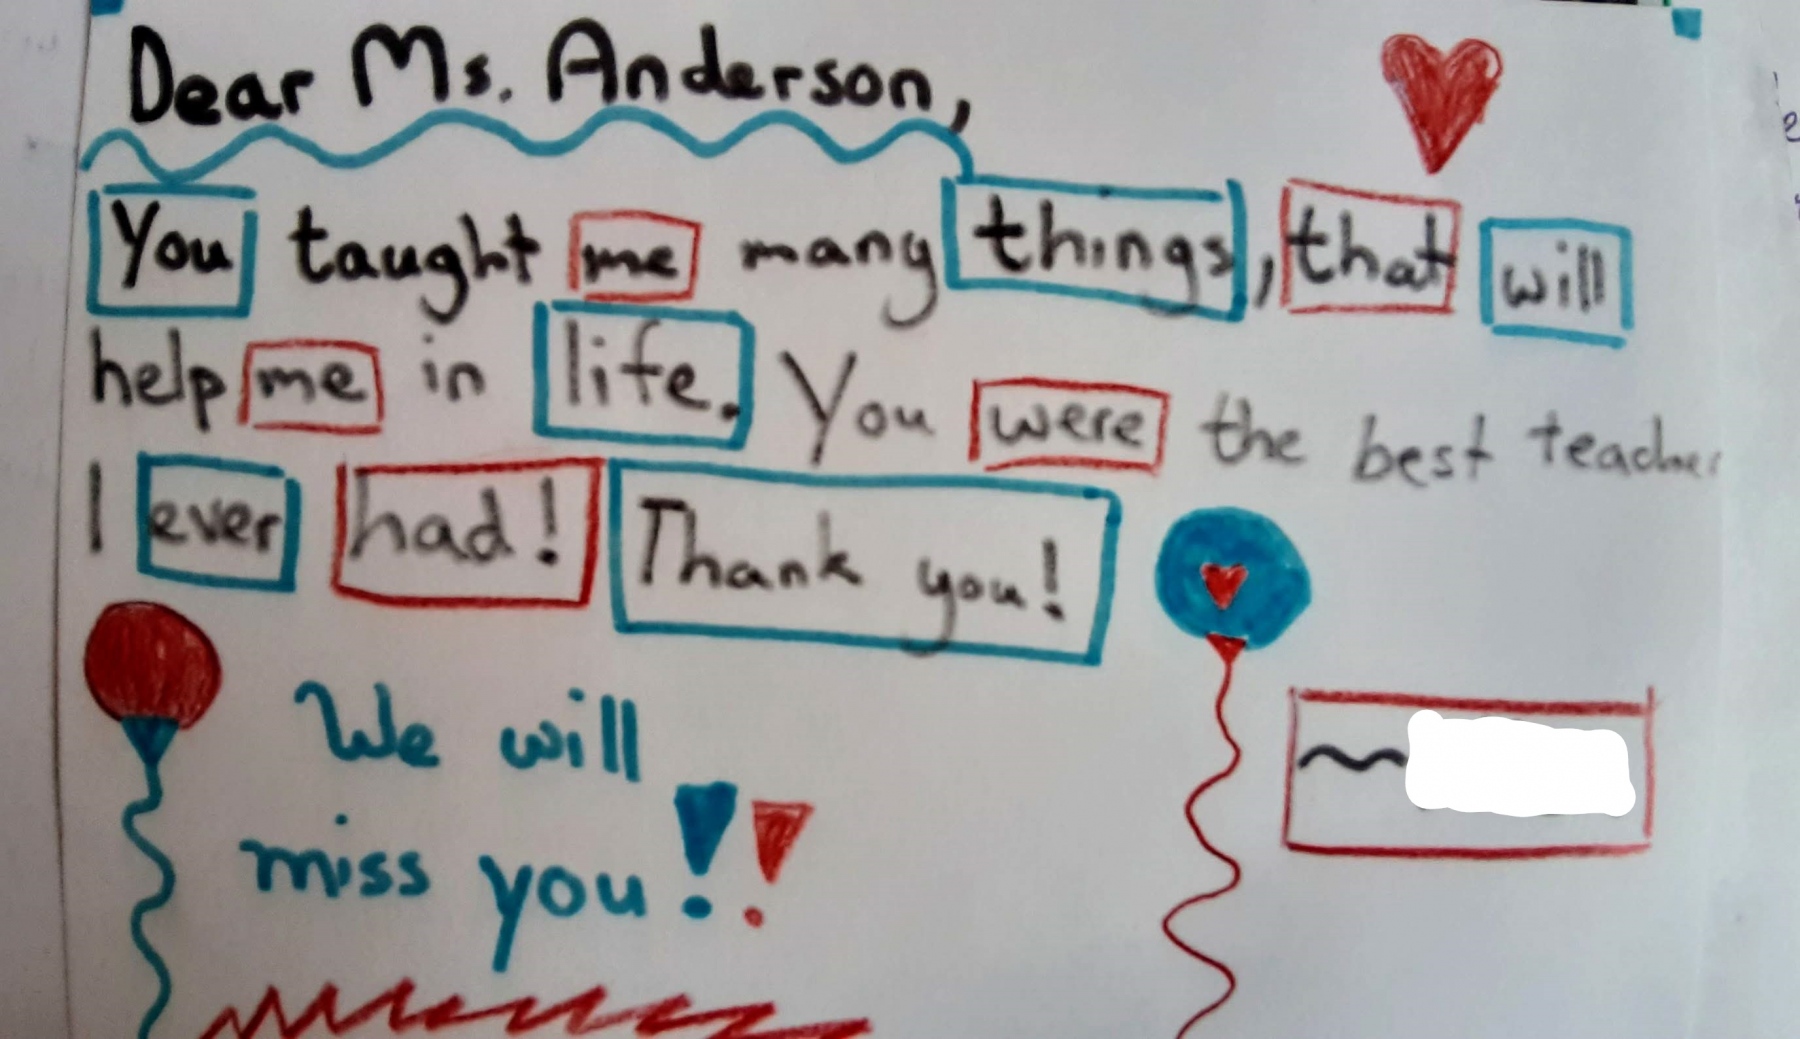 Dear Ms. Anderson,
You taught me many things, that will
help me in life. You were the best teacher
I ever had! Thank you!
We will
miss you!!